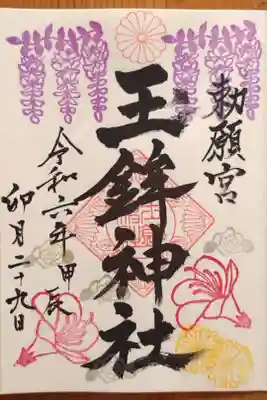 敕願宮
玉鉾神社
令和六年甲辰
卯月二十九日